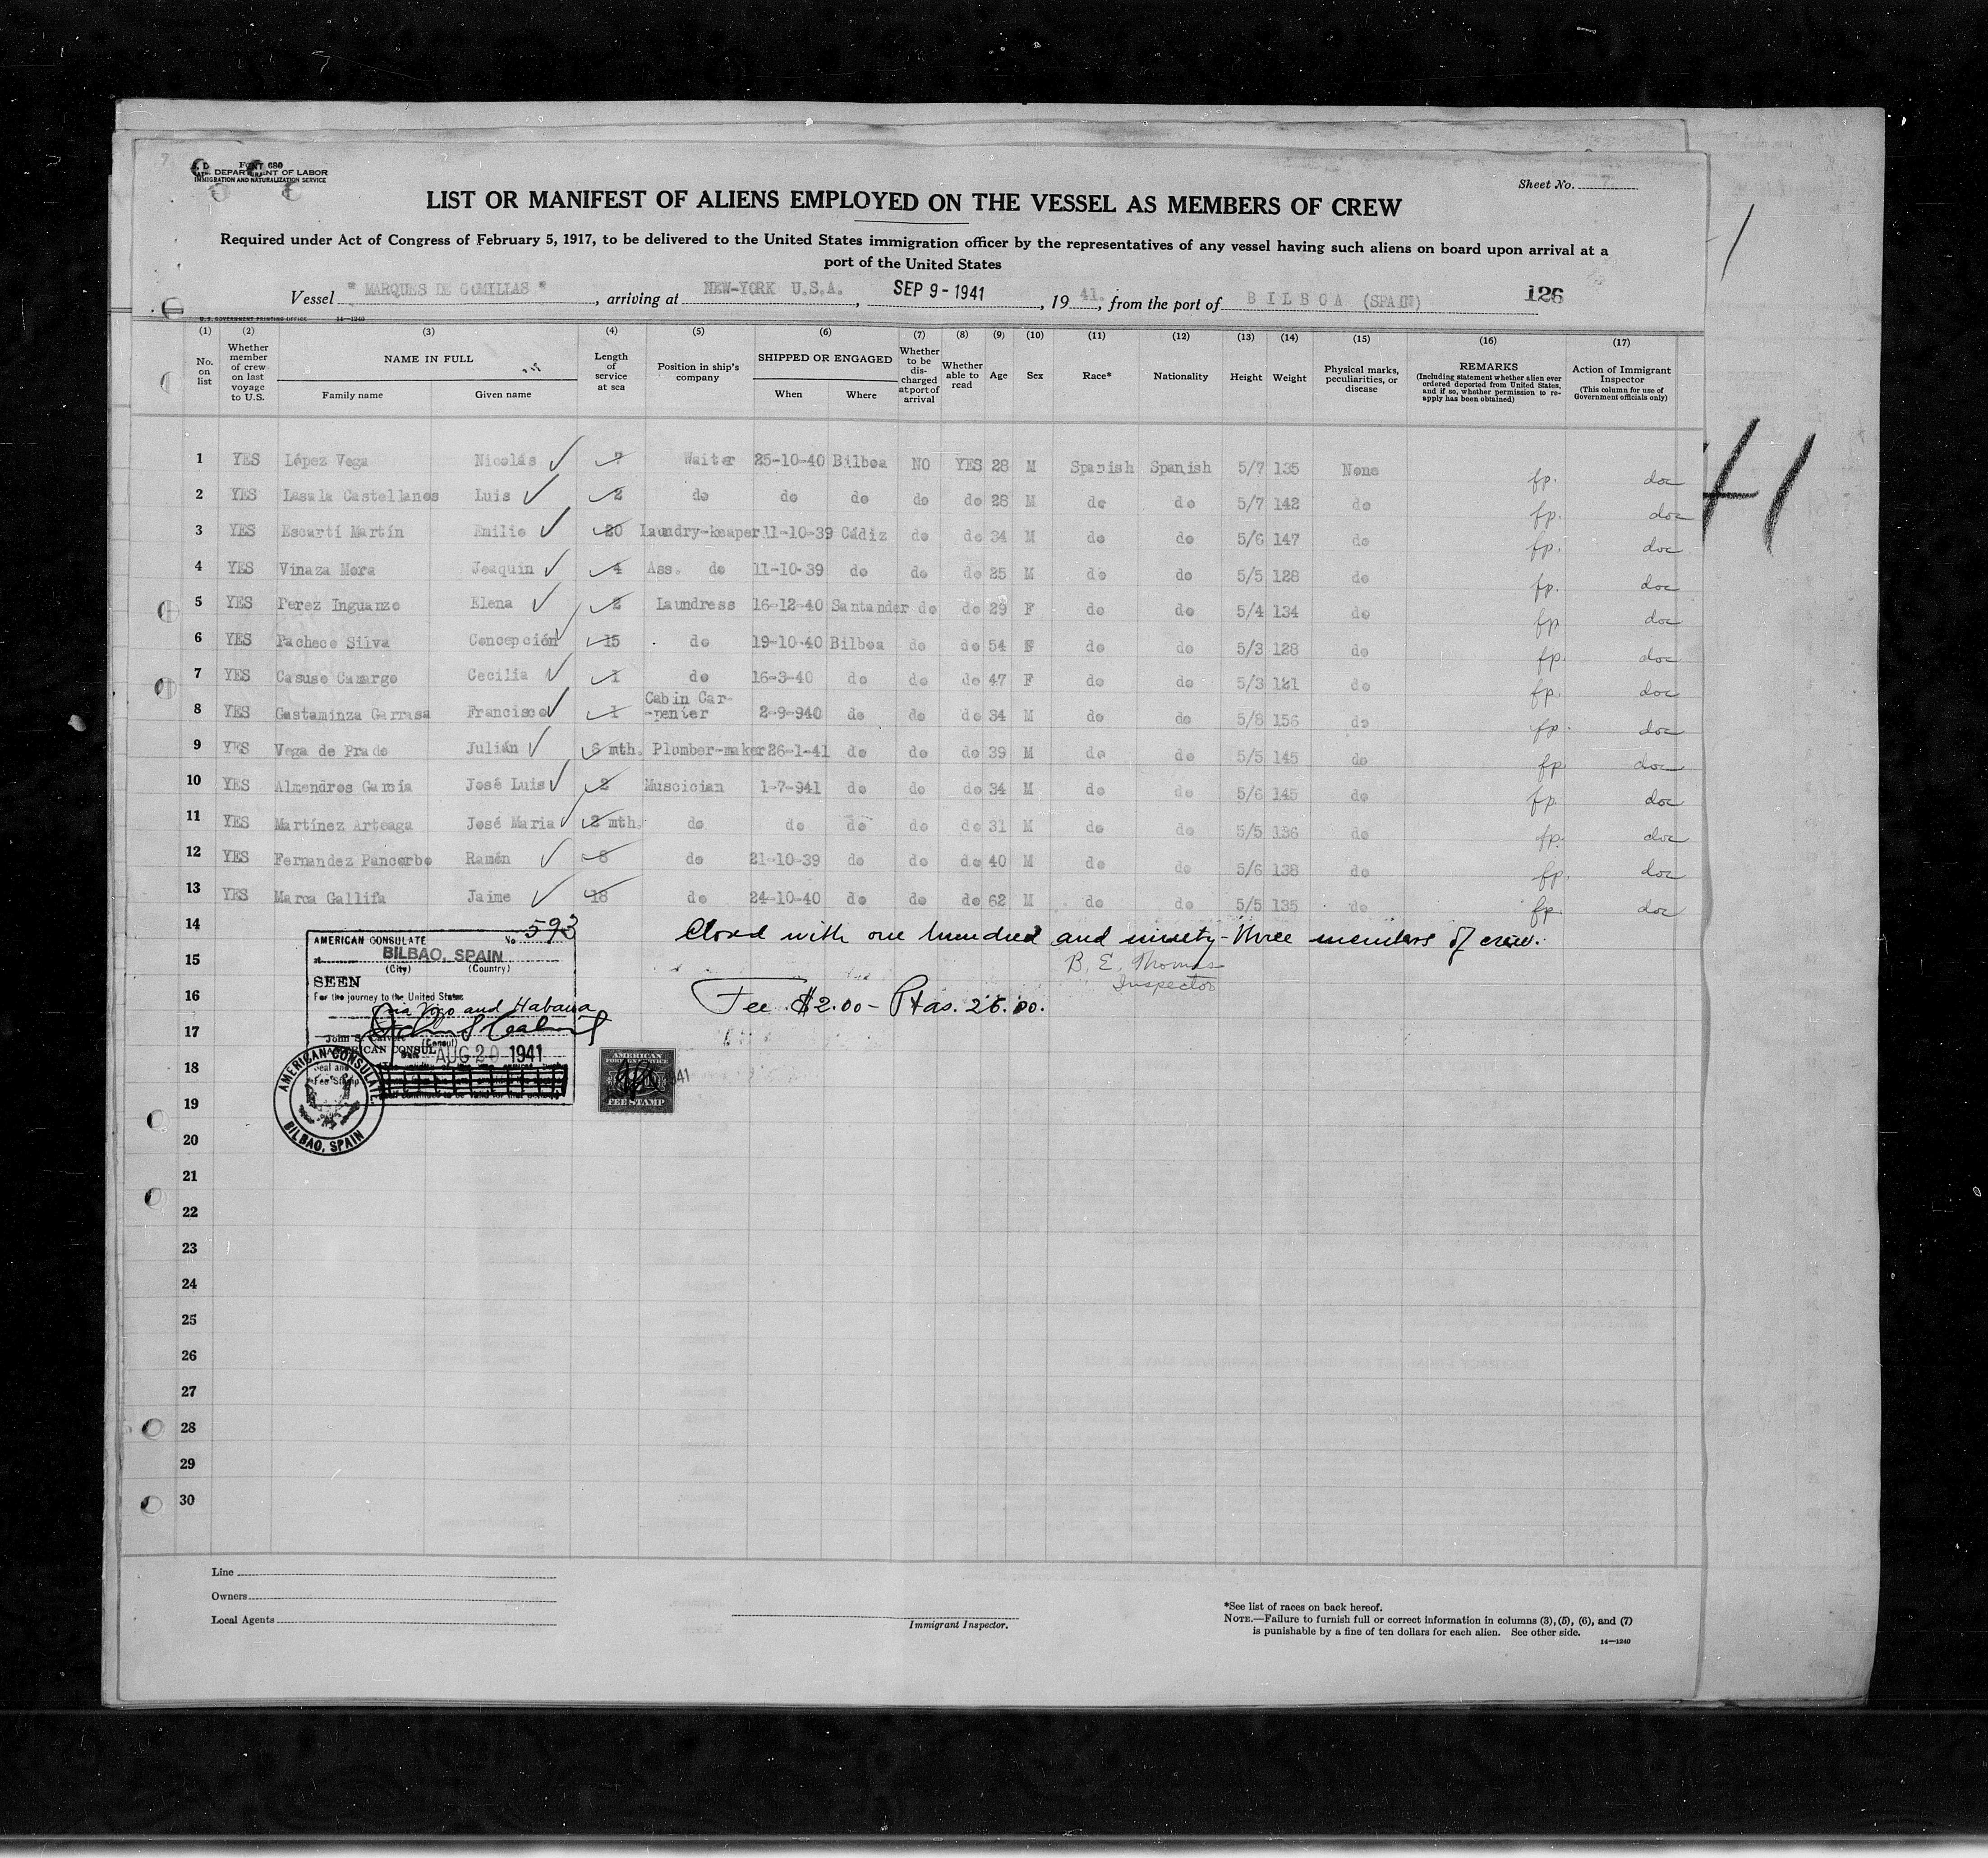 FORM 680
U. S. DEPARTMENT OF LABOR
IMMIGRATION AND NATURALIZATION SERVICE
Sheet No.
LIST OR MANIFEST OF ALIENS EMPLOYED ON THE VESSEL AS MEMBERS OF CREW
Required under Act of Congress of February 5, 1917, to be delivered to the United States immigration officer by the representatives of any vessel having such aliens on board upon arrival at a
port of the United States
Vessel " MARQUES DE COMILLAS ", arriving at NEW-YORK U.S.A., SEP 9 - 1941, 19 41., from the port of BILBOA (SPAIN) 126
U. S. GOVERNMENT PRINTING OFFICE 14—1240
(1) (2) (3) (4) (5) (6) (7) (8) (9) (10) (11) (12) (13) (14) (15) (16) (17)
No. on list
Whether member of crew on last voyage to U.S.
NAME IN FULL
Family name Given name
Length of service at sea
Position in ship's company
SHIPPED OR ENGAGED
When Where
Whether to be discharged at port of arrival
Whether able to read
Age
Sex
Race*
Nationality
Height
Weight
Physical marks, peculiarities, or disease
REMARKS
(Including statement whether alien ever ordered deported from United States, and if so, whether permission to reapply has been obtained)
Action of Immigrant Inspector
(This column for use of Government officials only)
1 YES López Vega Nicolás 7 Waiter 25-10-40 Bilboa NO YES 28 M Spanish Spanish 5/7 135 None fp. doc
2 YES Lasala Castellanos Luis 2 do do do do do 28 M do do 5/7 142 do fp. doc
3 YES Escartí Martín Emilio 20 Laundry-keaper 11-10-39 Cádiz do do 34 M do do 5/6 147 do fp. doc
4 YES Vinaza Mora Joaquín 4 Ass. do 11-10-39 do do do 25 M do do 5/5 128 do fp. doc
5 YES Perez Inguanzo Elena 2 Laundress 16-12-40 Santander do do 29 F do do 5/4 134 do fp doc
6 YES Pacheco Silva Concepción 15 do 19-10-40 Bilboa do do 54 F do do 5/3 128 do fp. doc
7 YES Casuso Camargo Cecilia 1 do 16-3-40 do do do 47 F do do 5/3 121 do fp. doc
8 YES Gastaminza Garrasa Francisco 1 Cabin Car-
-penter 2-9-940 do do do 34 M do do 5/8 156 do fp. doc
9 YES Vega de Prado Julián 6 mth. Plumber-maker 26-1-41 do do do 39 M do do 5/5 145 do fp doc
10 YES Almendros García José Luis 2 Muscician 1-7-941 do do do 34 M do do 5/6 145 do fp doc
11 YES Martínez Arteaga José Maria 2 mth. do do do do do 31 M do do 5/5 136 do fp. doc
12 YES Fernandez Pancorbo Ramón 8 do 21-10-39 do do do 40 M do do 5/6 138 do fp. doc
13 YES Marca Gallifa Jaime 18 do 24-10-40 do do do 62 M do do 5/5 135 do fp. doc
14
Closed with one hundred and ninety-three members of crew.
15
B. E. Thomas
Inspector
16
Fee $2.00 - Ptas. 25.00.
17
18
19
20
21
22
23
24
25
26
27
28
29
30
AMERICAN CONSULATE No. 593
at BILBAO, SPAIN
(City) (Country)
SEEN
For the journey to the United States
via Vigo and Habana
John S. Calvert
(Consul)
AMERICAN CONSUL
Date AUG 20 1941
Seal and
Fee Stamp
AMERICAN CONSULATE.
BILBAO, SPAIN
AMERICAN
FOREIGN SERVICE
FEE STAMP
1941
41
Line
Owners
Local Agents
Immigrant Inspector.
*See list of races on back hereof.
NOTE.—Failure to furnish full or correct information in columns (3), (5), (6), and (7)
is punishable by a fine of ten dollars for each alien. See other side.
14—1240